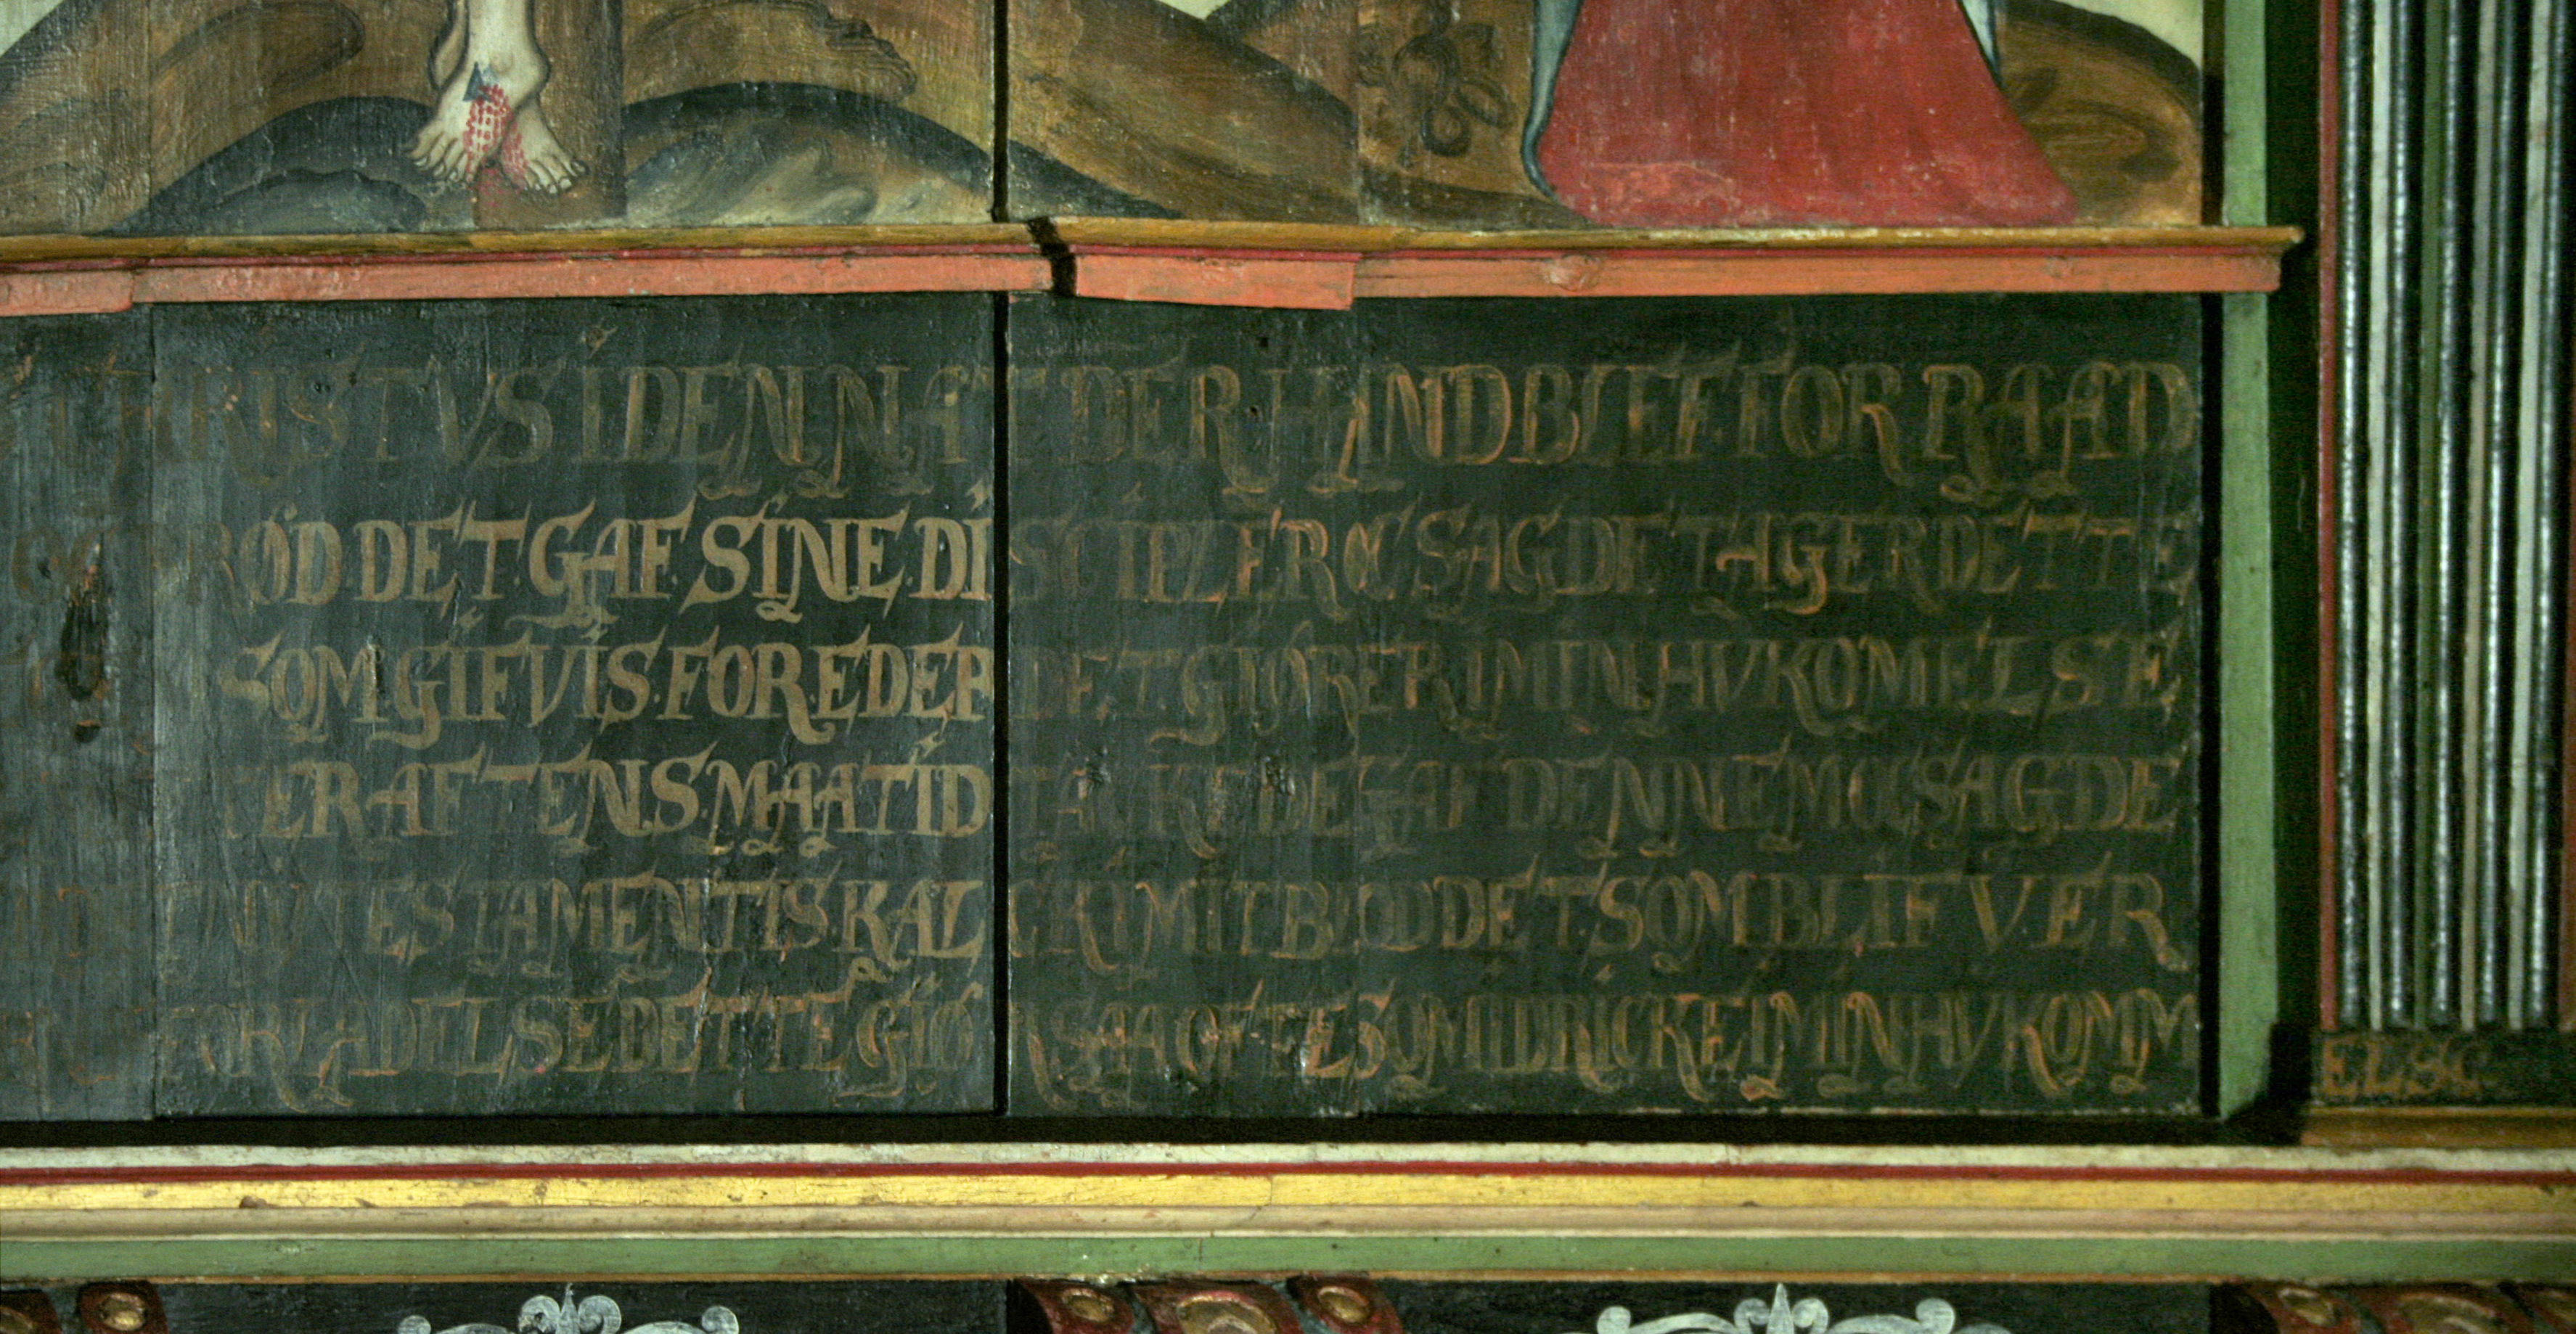 CHRISTVS I DEN NAT DER HAND BLEF FORRAAD
BRØD DET GAF SINE DISCIPLER OC SAGDE TAGER DETTE
SOM GIFVIS FOR EDER DET GIØRER I MIN HVKOMELSE
EFTER AFTENSMAATID TACKEDE GAF DENNEM OC SAGDE
NY TESTAMENTIS KALCK I MIT BLOD DET SOM BLIFVER
FORLADELSE DETTE GIØR SAA OFTE SOM I DRICKE I MIN HVKOMM
ELSE